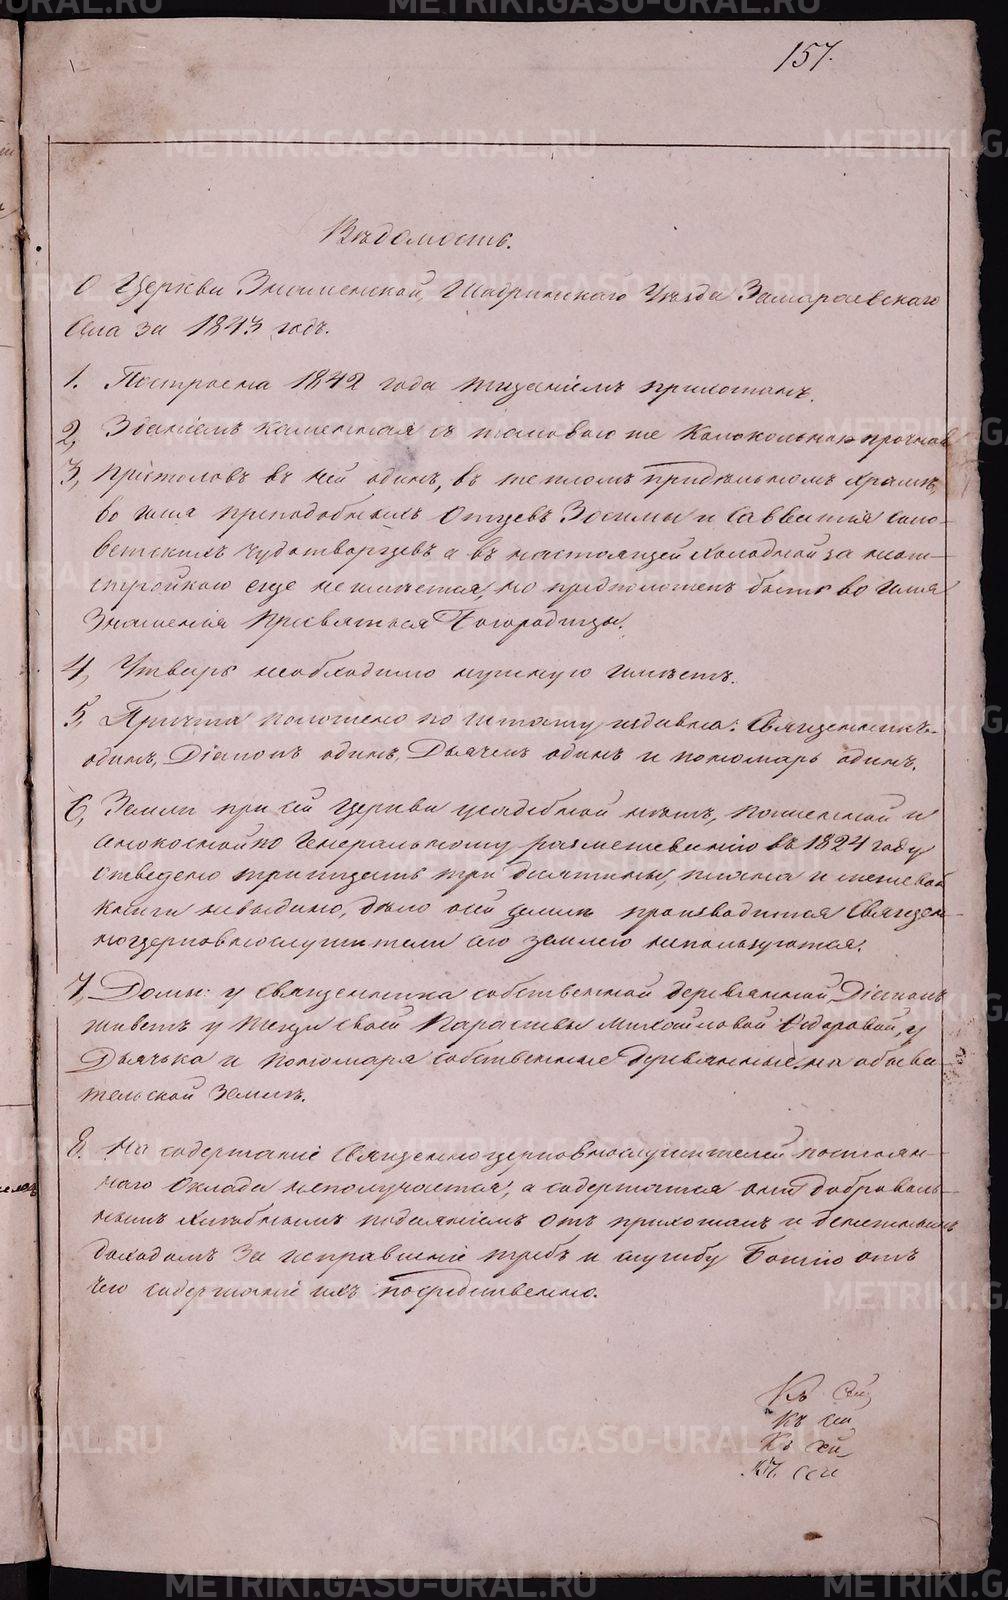 157.
Вѣдомость.
О Церкви Знаменской, Шадринскаго Уѣзда Замараевскаго
Села за 1843 годъ.
1. Построена 1842 года тщаніемъ прихожанъ.
2, Зданіемъ каменная съ таковою же колокольнею прочна
3, Престоловъ въ ней одинъ, въ тепломъ придѣльномъ храмѣ,
во имя преподобныхъ Отцевъ Зосимы и Савватія Соло-
вецкихъ чудотворцевъ а въ настоящей холодной за неот-
стройкою еще не имѣется, но предположенъ быть во имя
Знаменія Пресвятыя Богородицы.
4, Утварь необходимо нужную имѣетъ.
5. Причта положено по штату издавна: Священникъ
одинъ, Діаконъ одинъ, Дьячекъ одинъ и пономарь одинъ.
6, Земли при сей Церкви усадебной нѣтъ, пашенной и
сѣнокосной по Генеральному размежеванію въ 1824 году
отведено тритцать три десятины, плана и межевой
книги невыдано, дѣло о сей землѣ производится Священ-
ноцерковнослужители сею землею непользуются.
7, Домы: у Священника собственной деревянной, Діаконъ
живетъ у тещи своей Парасковьи Михайловой Федоровой, у
Дьячька и пономаря собственные деревянные на обыва-
тельской землѣ.
8. На содержаніе Священноцерковнослужителей постоян-
наго оклада неполучается, а содержатся они доброволь-
нымъ хлѣбнымъ подаяніемъ отъ прихожанъ и денежнымъ
доходомъ за исправленіе требъ и службу Божію отъ
чего содержаніе ихъ посредственно.
Къ сей
Къ сей
Къ сей
Къ сей
METRIKI.GASO-URAL.RU